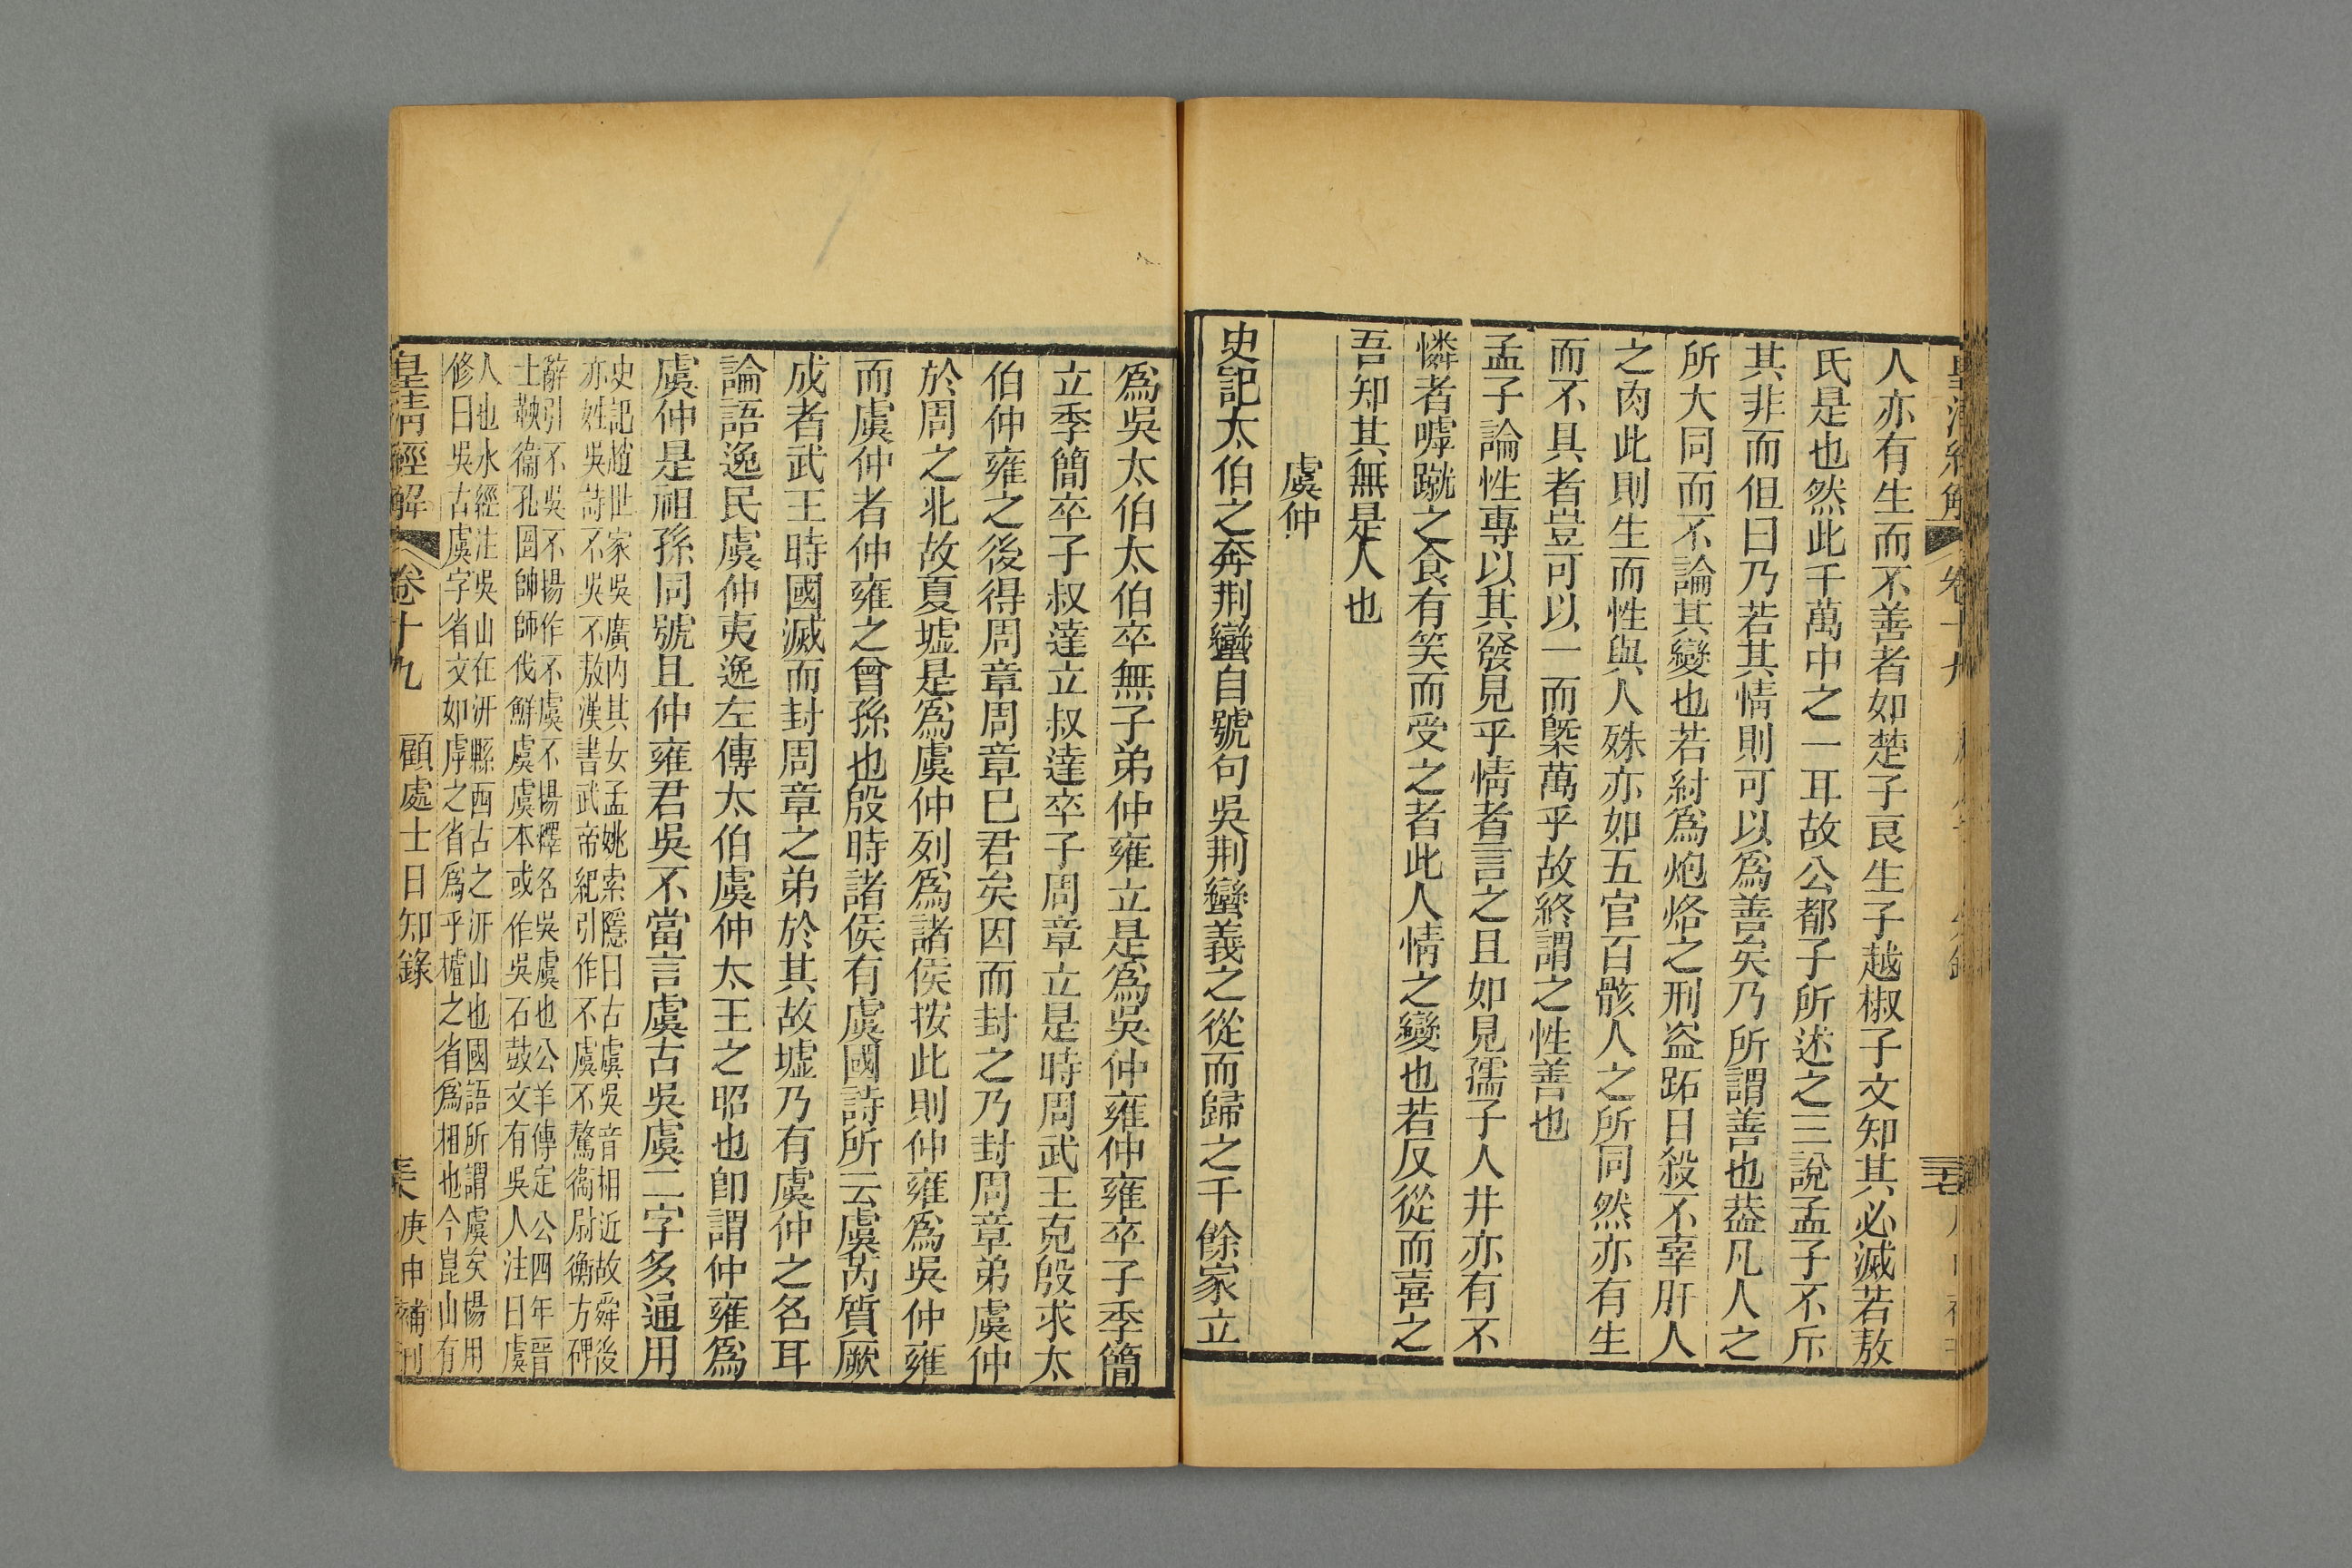 人亦有生而不善者如楚子良生子越椒子文知其必滅若敖
氏是也然此千萬中之一耳故公都子所述之三說孟子不斥
其非而但曰乃若其情則可以爲善矣乃所謂善也葢凡人之
所大同而不論其變也若紂爲炮烙之刑盜跖日殺不辜肝人
之肉此則生而性與人殊亦如五官百骸人之所同然亦有生
而不具者豈可以一而槩萬乎故終謂之性善也
孟子論性專以其發見乎情者言之且如見孺子入井亦有不
憐者嘑蹴之食有笑而受之者此人情之變也若反從而喜之
吾知其無是人也
虞仲
史記太伯之奔荆蠻自號句吳荆蠻義之從而歸之千餘家立
爲吳太伯太伯卒無子弟仲雍立是爲吳仲雍仲雍卒子季簡
立季簡卒子叔達立叔達卒子周章立是時周武王克殷求太
伯仲雍之後得周章周章已君矣因而封之乃封周章弟虞仲
於周之北故夏墟是爲虞仲列爲諸侯按此則仲雍爲吳仲雍
而虞仲者仲雍之曾孫也殷時諸侯有虞國詩所云虞芮質厥
成者武王時國滅而封周章之弟於其故墟乃有虞仲之名耳
論語逸民虞仲夷逸左傳太伯虞仲太王之昭也卽謂仲雍爲
虞仲是祖孫同號且仲雍君吳不當言虞古吳虞二字多通用
史記趙世家吳廣內其女孟姚索隱曰古虞吳音相近故舜後
亦姓吳詩不吳不敖漢書武帝紀引作不虞不驁衞尉衡方碑
辭引不吳不揚作不虞不揚釋名吳虞也公羊傳定公四年晉
士鞅衞孔圄帥師伐鮮虞虞本或作吳石鼓文有吳人注曰虞
人也水經注吳山在汧縣西古之汧山也國語所謂虞矣楊用
修曰吳古虞字省文如虖之省爲乎櫨之省爲相也今崑山有
皇淸經解 卷十九 顧處士日知錄 庚申補刊